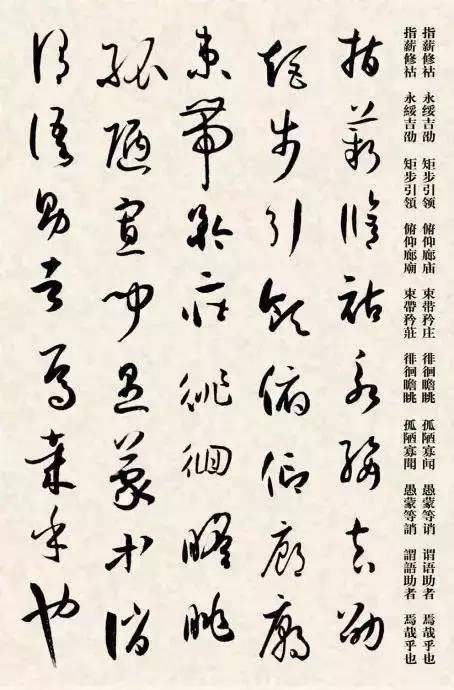 指薪修祜 永绥吉劭 矩步引领 俯仰廊庙 束带矜庄 徘徊瞻眺 孤陋寡闻 愚蒙等诮 谓语助者 焉哉乎也
指薪修祜 永綏吉劭 矩步引領 俯仰廊廟 束帶矜莊 徘徊瞻眺 孤陋寡聞 愚蒙等誚 謂語助者 焉哉乎也
指薪修祜永綏吉劭
矩步引領俯仰廊廟
束帶矜莊徘徊瞻眺
孤陋寡聞愚蒙等誚
謂語助者焉哉乎也